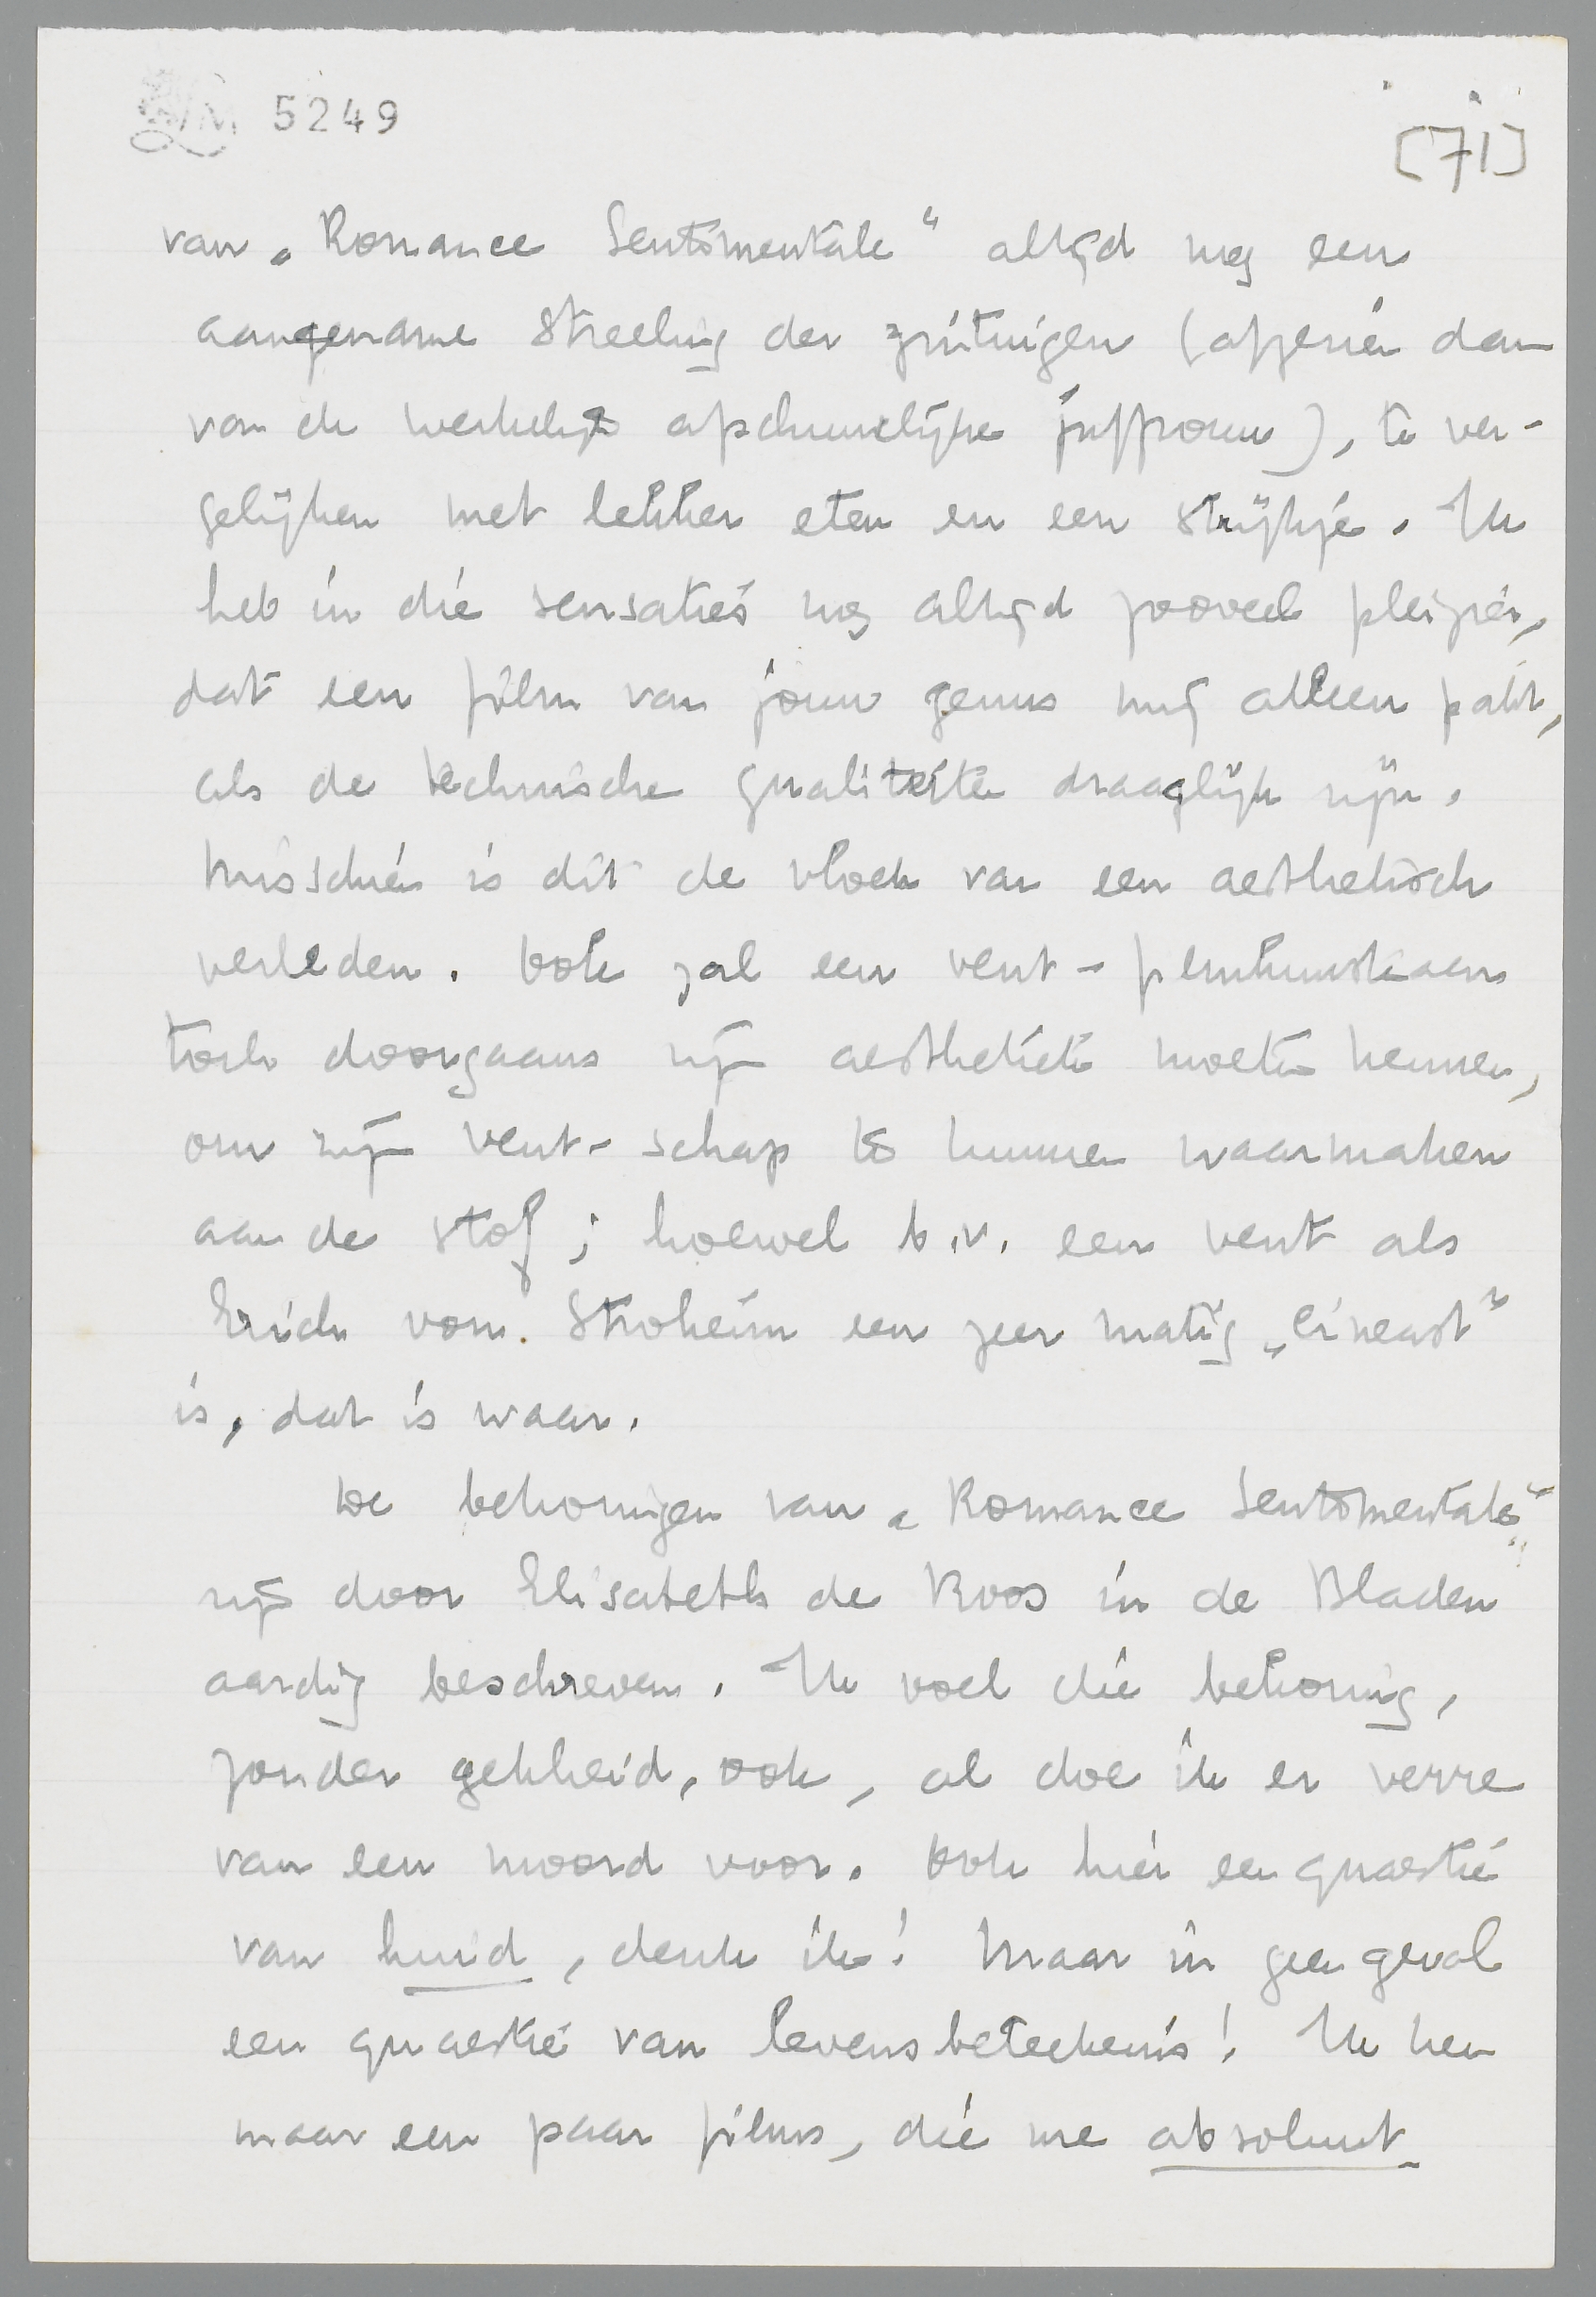 LM 5249
[71]
van „Romance Sentimentale“ altijd nog een
aangename streeling der zintuigen (afgezien dan
van de werkelijk afschuwelijke juffrouw), te ver-
gelijken met lekker eten en een strijkje. Ik
heb in die sensaties nog altijd zooveel pleizier,
dat een film van jouw genus mij alleen pakt,
als de technische qualiteiten draaglijk zijn.
Misschien is dit de vloek van een aesthetisch
verleden. Ook zal een vent-filmkunstenaar
toch doorgaans zijn aesthetiek moeten kennen,
om zijn vent-schap te kunnen waarmaken
aan de stof; hoewel b.v. een vent als
Erich von Stroheim een zeer matig „cineast“
is, dat is waar.
De bekoringen van „Romance Sentimentale“
zijn door Elisabeth de Roos in de Bladen
aardig beschreven. Ik voel die bekoring,
zonder gekheid, ook, al doe ik er verre
van een moord voor. Ook hier een quaestie
van huid, denk ik! Maar in geen geval
een quaestie van levensbeteekenis! Ik ken
maar een paar films, die me absoluut